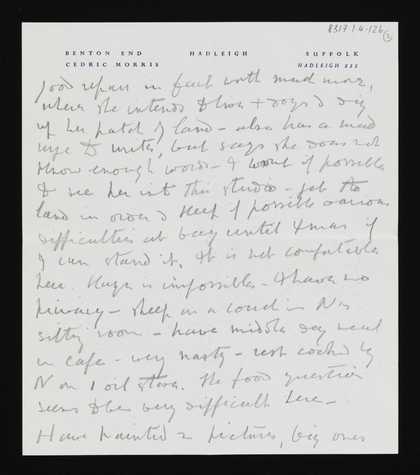 8317.1.4.126
3
BENTON END HADLEIGH SUFFOLK
CEDRIC MORRIS HADLEIGH
good repair in fact worth much more,
where she intends to live + dogs & dig
up her patch of land – also has a mad
urge to write, but says she does not
know enough words – I want if possible
to see her into this studio – get the
land in order & keep if possible various
difficulties at bay until Xmas if
I can stand it. It is not comfortable
here. is impossible – I have no
privacy – sleep on a couch in N's
sitting room – have middle day meal
in cafe – very nasty – rest cooked by
N on 1 oil stove. The food question
seems to be very difficult here –
Have painted 2 pictures, big ones